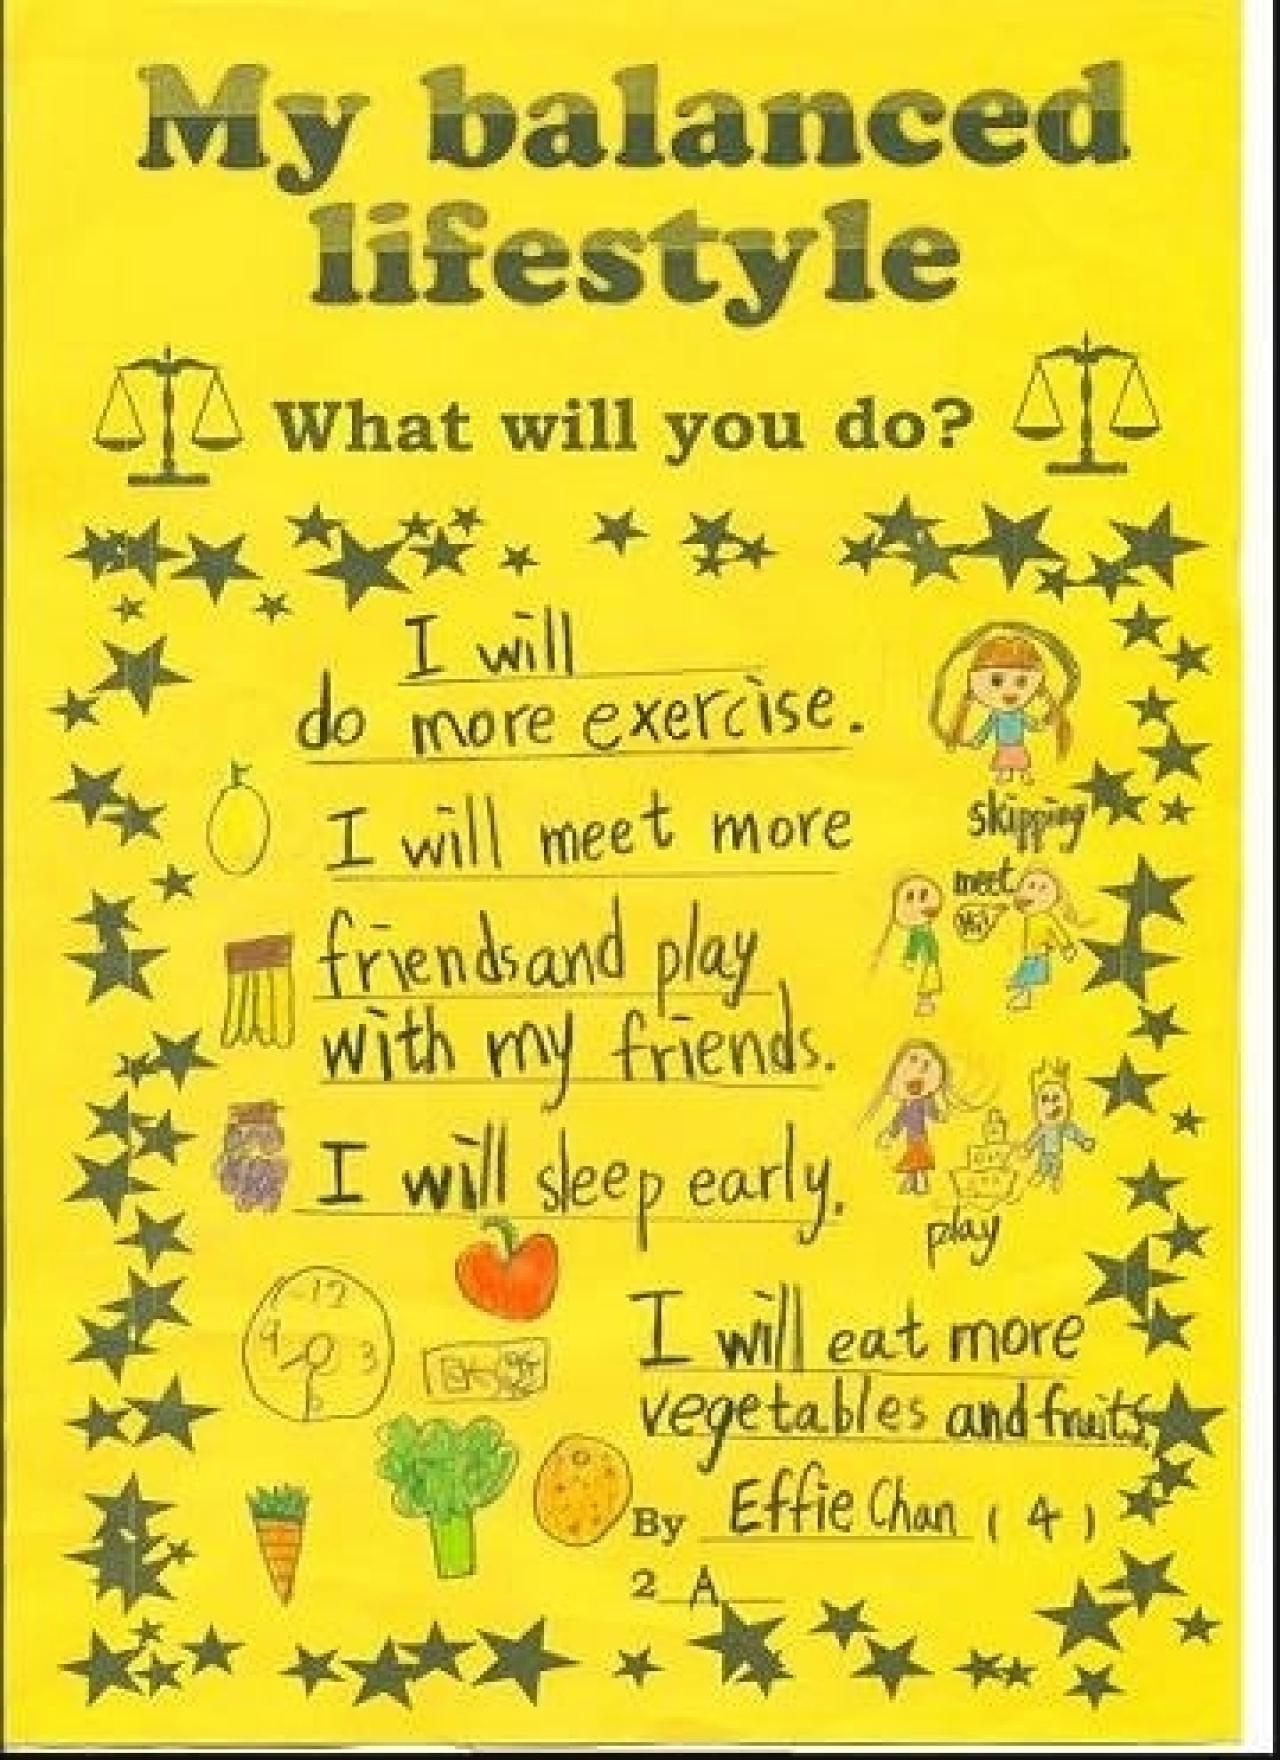 My balanced
lifestyle
What will you do?
I will
do more exercise.
skipping
I will meet more
meet
Hi!
friends and play
with my friends.
I will sleep early.
play
12
9 3
6
I will eat more
vegetables and fruits.
By Effie Chan (4)
2 A